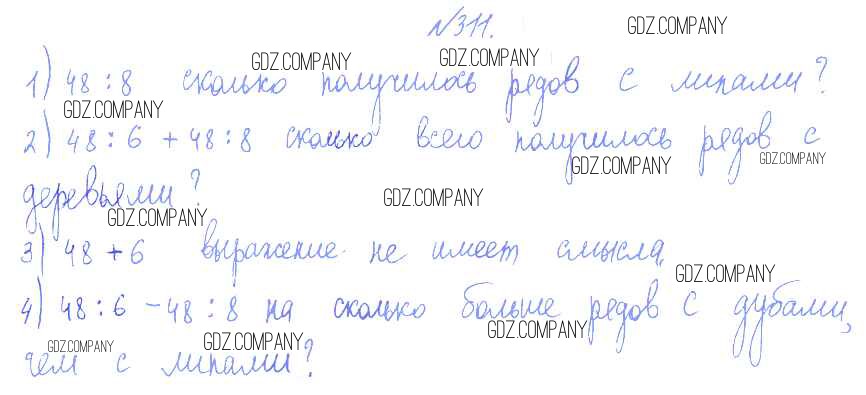 №311. GDZ.COMPANY
GDZ.COMPANY GDZ.COMPANY
1) 48 : 8 сколько получилось рядов с липами?
GDZ.COMPANY
2) 48 : 6 + 48 : 8 сколько всего получилось рядов с
GDZ.COMPANY GDZ.COMPANY
деревьями?
GDZ.COMPANY GDZ.COMPANY
3) 48 + 6 выражение не имеет смысла,
GDZ.COMPANY
4) 48 : 6 - 48 : 8 на сколько больше рядов с дубами,
GDZ.COMPANY GDZ.COMPANY GDZ.COMPANY
чем с липами?